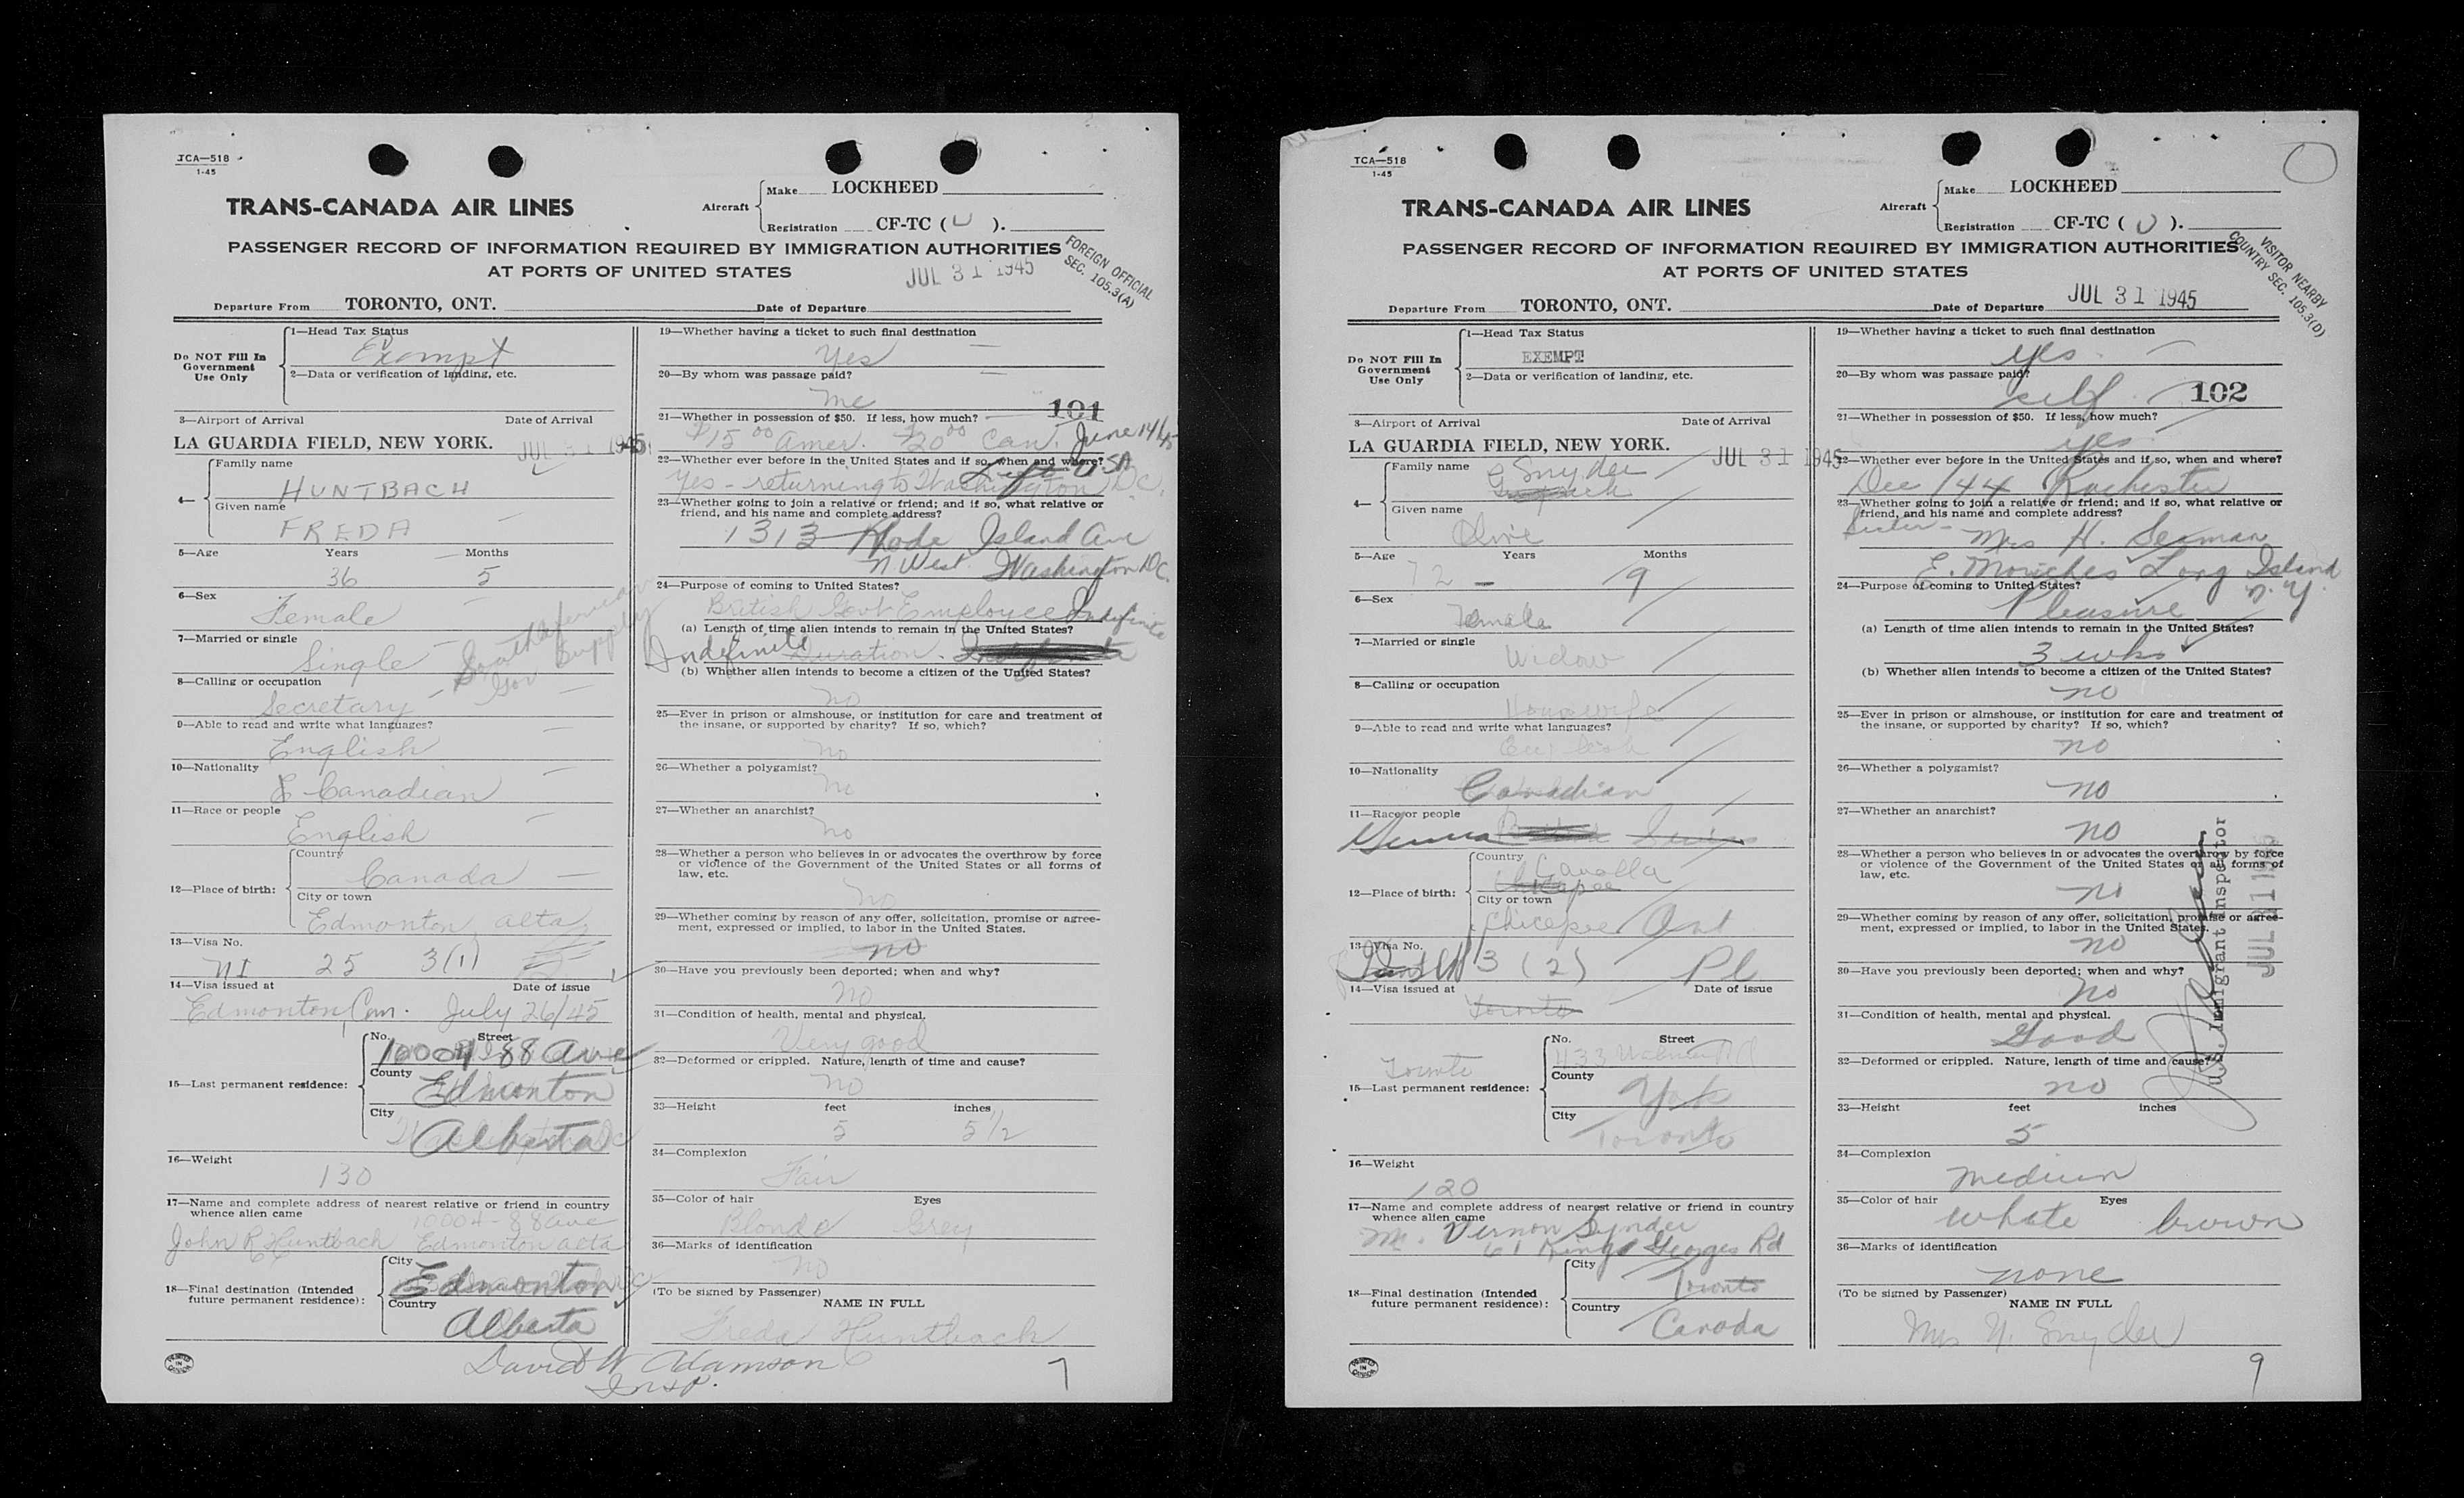 TCA—518
1-45
TRANS-CANADA AIR LINES
Aircraft
Make LOCKHEED
Registration CF-TC ( U ).
PASSENGER RECORD OF INFORMATION REQUIRED BY IMMIGRATION AUTHORITIES
AT PORTS OF UNITED STATES
JUL 31 1945
FOREIGN OFFICIAL
SEC. 105.3(A)
Departure From TORONTO, ONT. Date of Departure
Do NOT Fill In
Government
Use Only
1—Head Tax Status
Exempt
2—Data or verification of landing, etc.
3—Airport of Arrival Date of Arrival
LA GUARDIA FIELD, NEW YORK. JUL 31 1945
4—
Family name
HUNTBACH
Given name
FREDA
5—Age Years Months
36 5
6—Sex
Female
7—Married or single
Single
South African
Gov Supply
8—Calling or occupation
Secretary
9—Able to read and write what languages?
English
10—Nationality
Canadian
11—Race or people
English
12—Place of birth:
Country
Canada
City or town
Edmonton alta
13—Visa No.
NI 25 3(1)
14—Visa issued at Date of issue
Edmonton, Can. July 26/45
15—Last permanent residence:
No. Street
10004 88 Ave
County
Edmonton
City
Alberta
16—Weight
130
17—Name and complete address of nearest relative or friend in country
whence alien came
10004-88 ave
John R Huntbach Edmonton alta
18—Final destination (Intended
future permanent residence):
City
Edmonton
Country
Alberta
19—Whether having a ticket to such final destination
Yes
20—By whom was passage paid?
me
101
21—Whether in possession of $50. If less, how much?
$15 00 Amer. $20 00 Can. June 14/45
22—Whether ever before in the United States and if so, when and where?
Left U.S.A
Yes - returning to Washington D.C.
23—Whether going to join a relative or friend; and if so, what relative or
friend, and his name and complete address?
1313 Rhode Island Ave
N West. Washington D.C.
24—Purpose of coming to United States?
British Govt Employee Indefinite
(a) Length of time alien intends to remain in the United States?
Indefinite Duration.
(b) Whether alien intends to become a citizen of the United States?
no
25—Ever in prison or almshouse, or institution for care and treatment of
the insane, or supported by charity? If so, which?
no
26—Whether a polygamist?
no
27—Whether an anarchist?
no
28—Whether a person who believes in or advocates the overthrow by force
or violence of the Government of the United States or all forms of
law, etc.
no
29—Whether coming by reason of any offer, solicitation, promise or agree-
ment, expressed or implied, to labor in the United States.
no
30—Have you previously been deported; when and why?
no
31—Condition of health, mental and physical.
Very good
32—Deformed or crippled. Nature, length of time and cause?
no
33—Height feet inches
5 5 1/2
34—Complexion
Fair
35—Color of hair Eyes
Blonde Grey
36—Marks of identification
no
(To be signed by Passenger)
NAME IN FULL
Freda Huntbach
David W Adamson
Insp.
7
PRINTED IN CANADA
TCA—518
1-45
TRANS-CANADA AIR LINES
Aircraft
Make LOCKHEED
Registration CF-TC ( U ).
PASSENGER RECORD OF INFORMATION REQUIRED BY IMMIGRATION AUTHORITIES
AT PORTS OF UNITED STATES
VISITOR NEARBY
COUNTRY SEC. 105.3(D)
Departure From TORONTO, ONT. Date of Departure JUL 31 1945
Do NOT Fill In
Government
Use Only
1—Head Tax Status
EXEMPT
2—Data or verification of landing, etc.
3—Airport of Arrival Date of Arrival
LA GUARDIA FIELD, NEW YORK. JUL 31 1945
4—
Family name
Snyder
Given name
Olive
5—Age Years Months
72 9
6—Sex
Female
7—Married or single
Widow
8—Calling or occupation
Housewife
9—Able to read and write what languages?
English
10—Nationality
Canadian
11—Race or people
12—Place of birth:
Country
Canada
City or town
Chicopee Ont
13—Visa No.
3 (2) Pl
14—Visa issued at Date of issue
Toronto
15—Last permanent residence:
Toronto
No. Street
433
County
York
City
Toronto
16—Weight
120
17—Name and complete address of nearest relative or friend in country
whence alien came
Mr. Vernon Synder
61 Kings Georges Rd
18—Final destination (Intended
future permanent residence):
City
Toronto
Country
Canada
19—Whether having a ticket to such final destination
yes
20—By whom was passage paid?
self 102
21—Whether in possession of $50. If less, how much?
yes
22—Whether ever before in the United States and if so, when and where?
Dec /44 Rochester
23—Whether going to join a relative or friend; and if so, what relative or
friend, and his name and complete address?
Sister - Mrs H. Seaman
E. Moriches Long Island
N.Y.
24—Purpose of coming to United States?
Pleasure
(a) Length of time alien intends to remain in the United States?
3 wks
(b) Whether alien intends to become a citizen of the United States?
no
25—Ever in prison or almshouse, or institution for care and treatment of
the insane, or supported by charity? If so, which?
no
26—Whether a polygamist?
no
27—Whether an anarchist?
no
28—Whether a person who believes in or advocates the overthrow by force
or violence of the Government of the United States or all forms of
law, etc.
no
29—Whether coming by reason of any offer, solicitation, promise or agree-
ment, expressed or implied, to labor in the United States.
no
30—Have you previously been deported; when and why?
no
31—Condition of health, mental and physical.
Good
32—Deformed or crippled. Nature, length of time and cause?
no
33—Height feet inches
5
34—Complexion
medium
35—Color of hair Eyes
white brown
36—Marks of identification
none
(To be signed by Passenger)
NAME IN FULL
Mrs Snyder
U.S. Immigrant Inspector
JUL 31 1945
9
PRINTED IN CANADA